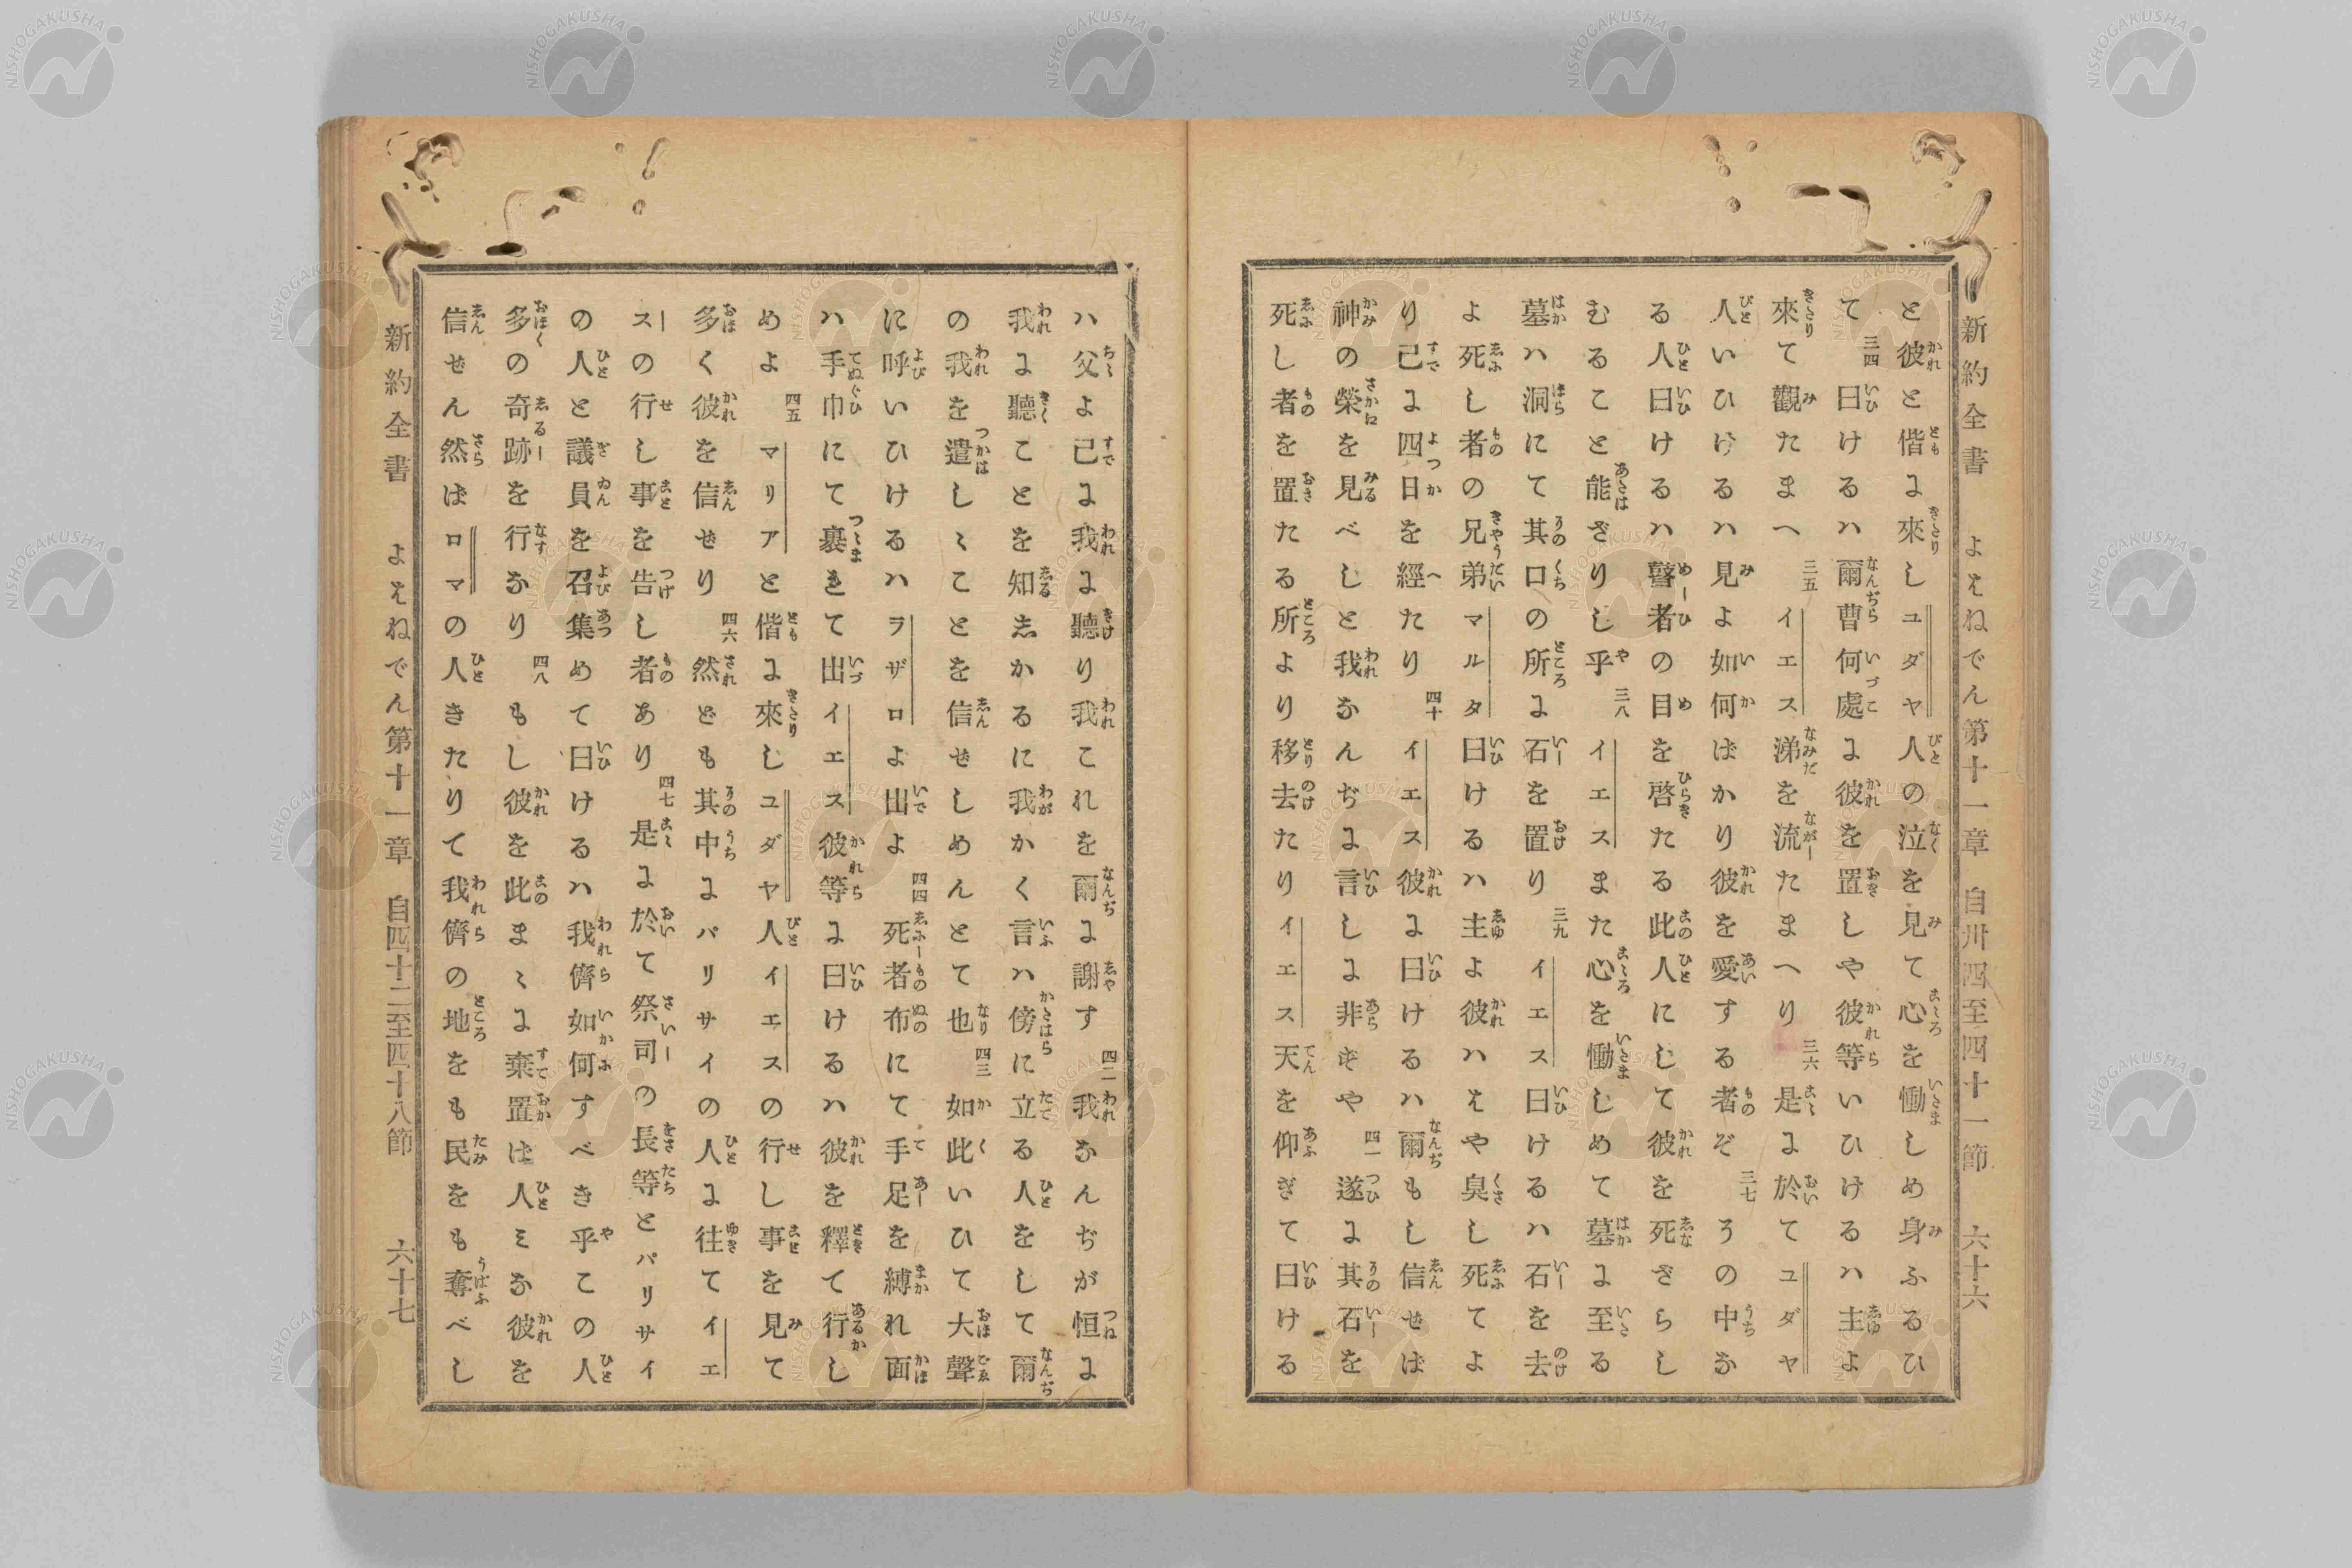 新約全書 よはねでん第十一章 自卅四至四十一節 六十六
と彼と偕に來しユダヤ人の泣を見て心を慟しめ身ふるひ
て三四曰けるハ爾曹何處に彼を置しや彼等いひけるハ主よ
來て觀たまへ三五イエス涕を流たまへり三六是に於てユダヤ
人いひけるハ見よ如何ばかり彼を愛する者ぞ三七その中なる
人曰けるハ瞽者の目を啓たる此人にして彼を死ざらし
むること能ざりし乎三八イエスまた心を慟しめて墓に至る
墓ハ洞にて其口の所に石を置り三九イエス曰けるハ石を去
よ死し者の兄弟マルタ曰けるハ主よ彼ハはや臭し死てよ
り已に四日を經たり四十イエス彼に曰けるハ爾もし信せば
神の榮を見べしと我なんぢに言しに非ずや四一遂に其石を
死し者を置たる所より移去たりイエス天を仰ぎて曰ける
ハ父よ已に我に聽り我これを爾に謝す四二我なんぢが恒に
我に聽ことを知しかるに我かく言ハ傍に立る人をして爾
の我を遣しゝことを信せしめんとて也四三如此いひて大聲
に呼いひけるハラザロよ出よ四四死者布にて手足を縛れ面
ハ手巾にて裹きて出イエス彼等に曰けるハ彼を釋て行し
めよ四五マリアと偕に來しユダヤ人イエスの行し事を見て
多く彼を信せり四六然ども其中にパリサイの人に往てイエ
スの行し事を告し者あり四七是に於て祭司の長等とパリサイ
の人と議員を召集めて曰けるハ我儕如何すべき乎この人
多の奇跡を行なり四八もし彼を此まゝに棄置ば人ミな彼を
信せん然ばロマの人きたりて我儕の地をも民をも奪べし
新約全書 よはねでん第十一章 自四十二至四十八節 六十七
NISHOGAKUSHA